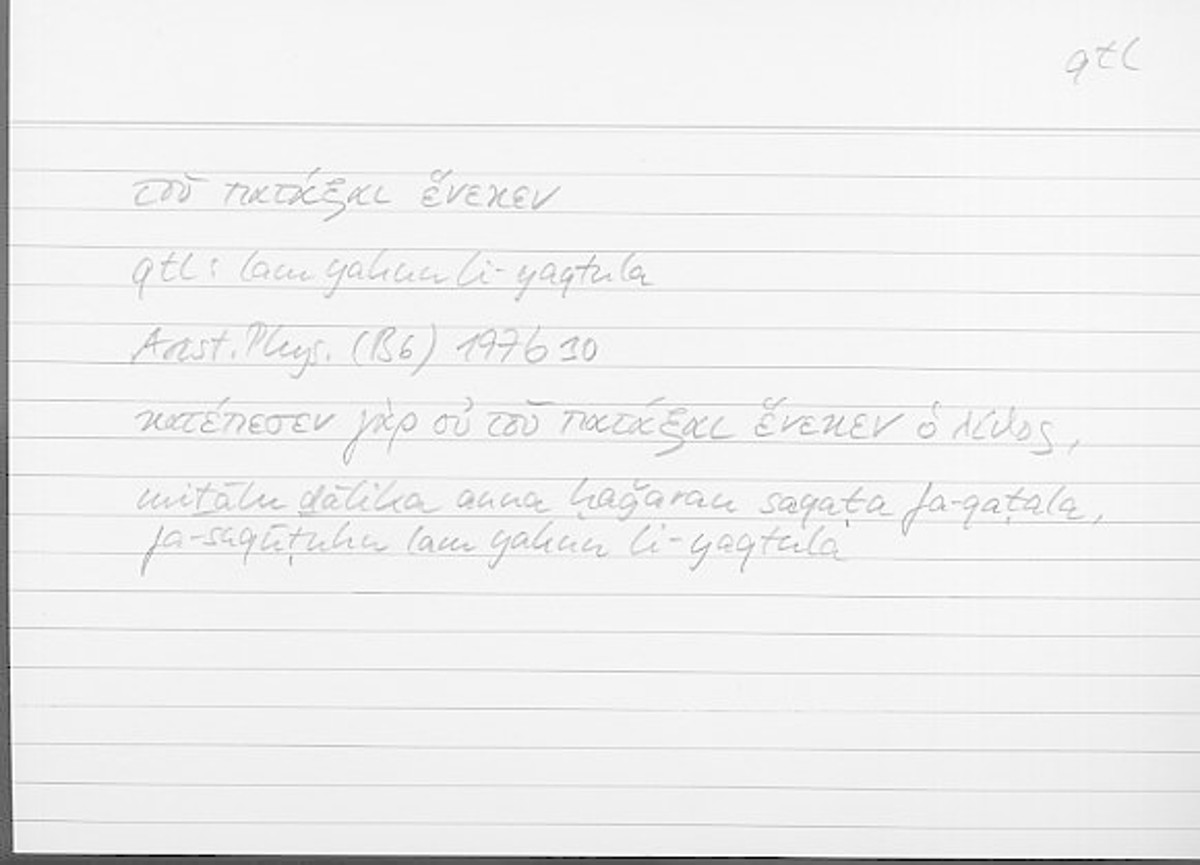 qtl
τοῦ πατάξαι ἕνεκεν
qtl: lam yakun li-yaqtula
Arist. Phys. (B6) 197b30
κατέπεσεν γὰρ οὐ τοῦ πατάξαι ἕνεκεν ὁ λίθος,
miṯālu ḏālika anna ḥaǧaran saqaṭa fa-qaṭala,
fa-suqūṭuhu lam yakun li-yaqtula